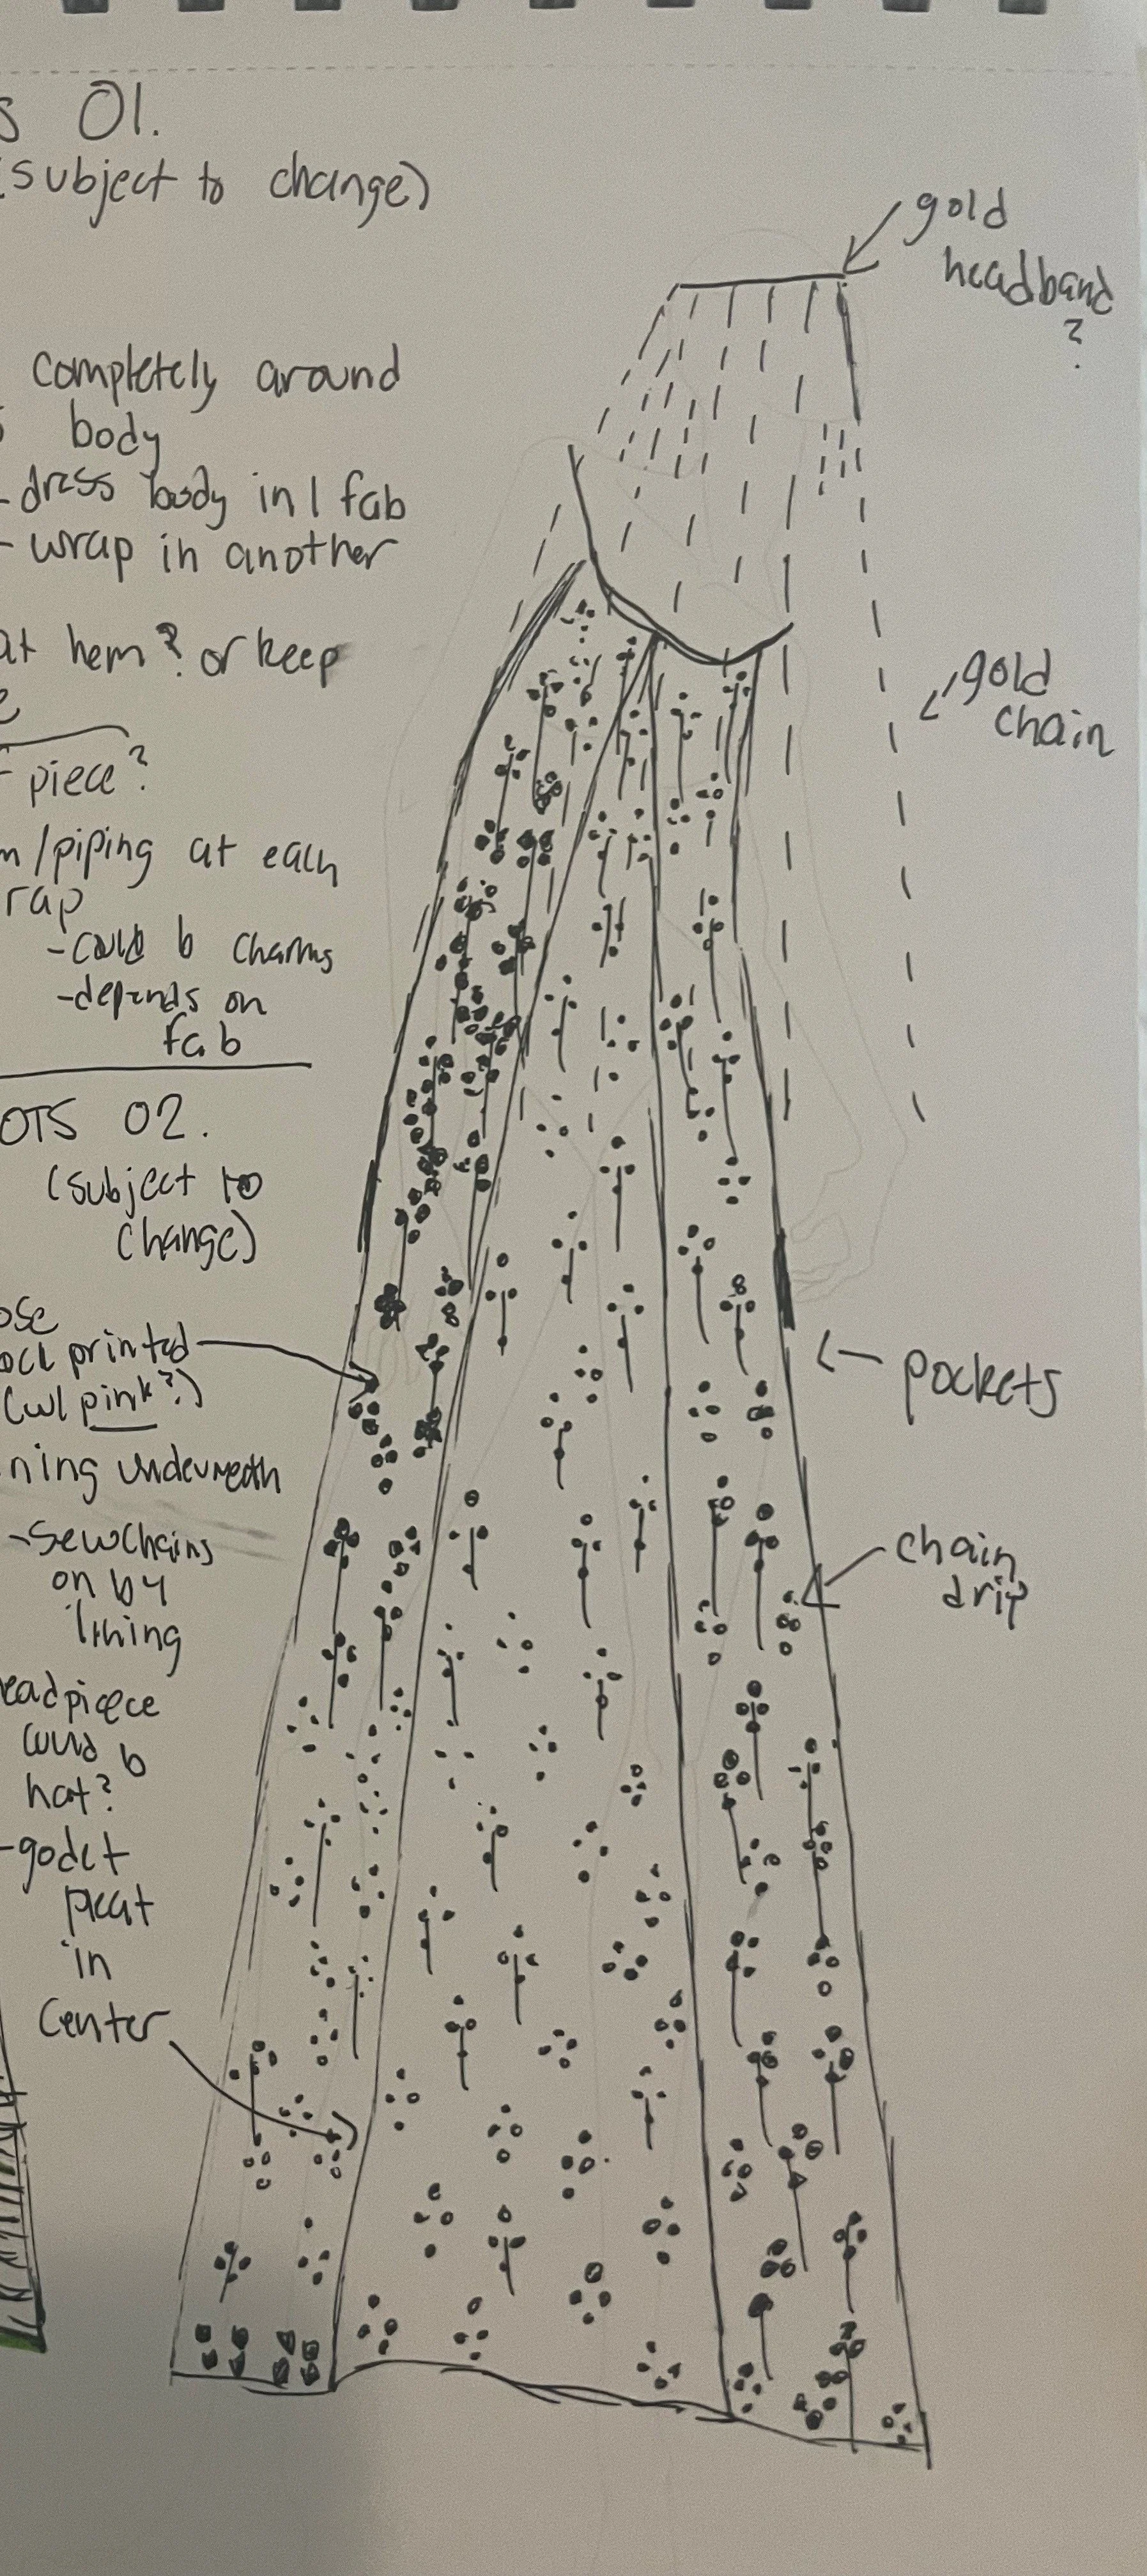 S 01.
(subject to change)
gold
headband
?
completely around
body
- dress body in 1 fab
- wrap in another
at hem? or keep
piece?
/piping at each
rap
- could b charms
- depends on
fab
gold
chain
OTS 02.
(subject to
change)
ose
ock printed
(w/ pink?)
pockets
ning underneath
- sew chains
on by
lining
chain
drip
eadpiece
could b
hat?
- godet
pleat
in
center